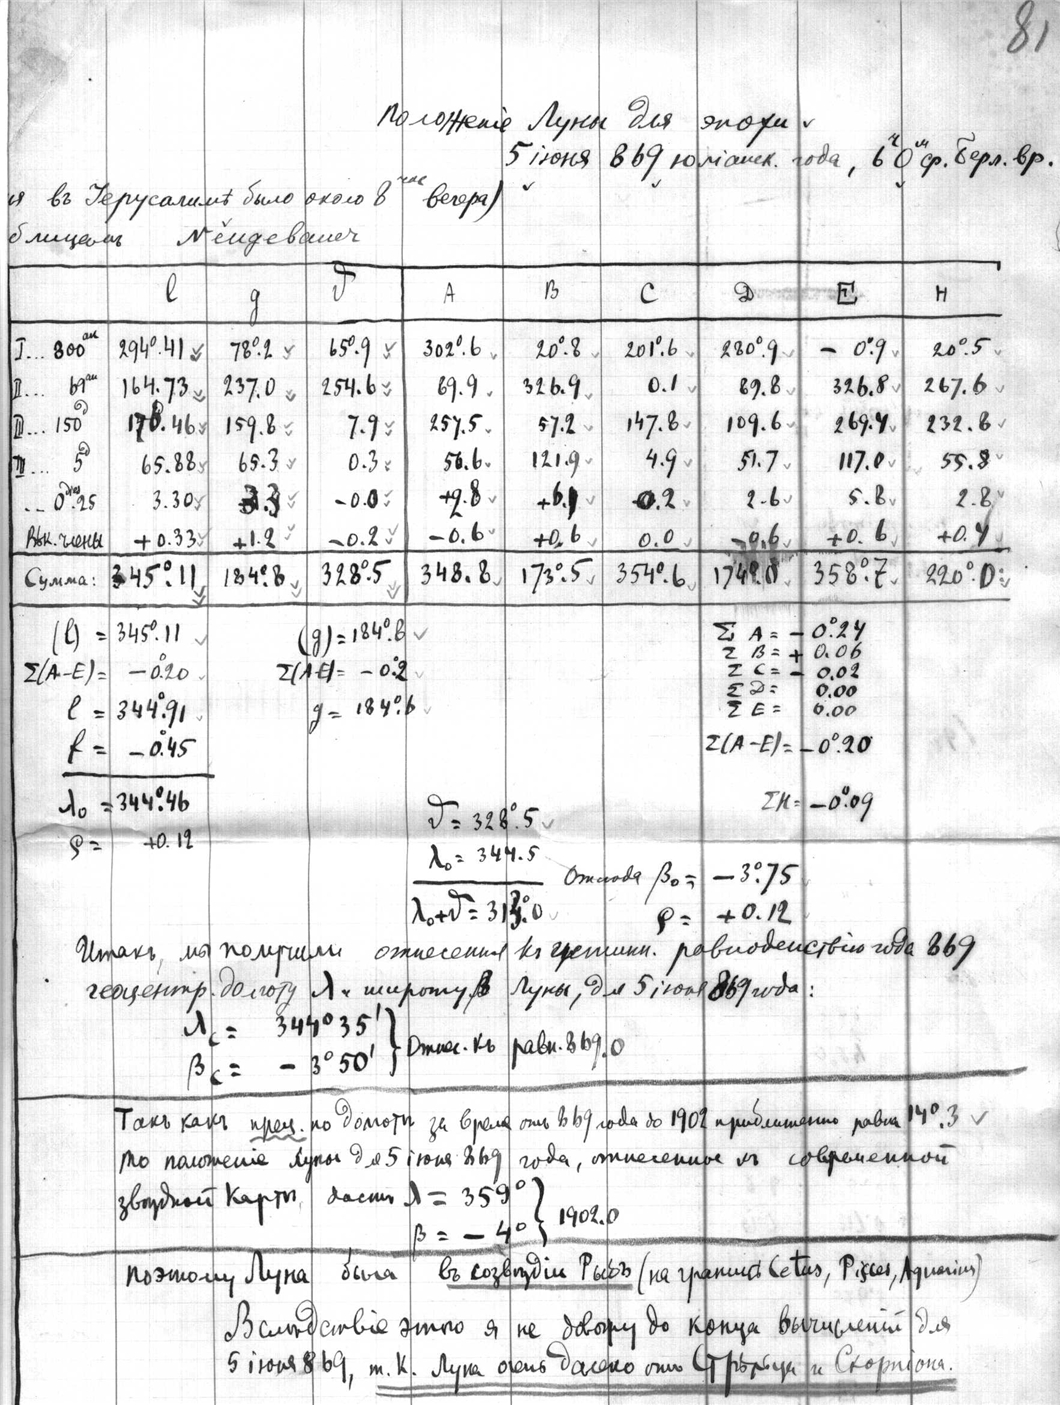 81
Положеніе Луны для эпохи
5 іюня 869 юліанск. года, 6ч 0м ср. Берл. вр.
я въ Іерусалимѣ было около 8 час вечера)
блицамъ
l g ϑ A B C D E H
I... 800 294°.41 78°.2 65°.9 302°.6 20°.8 201°.6 280°.9 – 0°.9 20°.5
II... 69 164.73 237.0 254.6 89.9 326.9 0.1 89.8 326.8 267.6
III... 150 176.46 159.8 7.9 257.5 57.2 147.8 109.6 269.4 232.8
IIII... 5 65.88 65.3 0.3 56.6 121.9 4.9 51.7 117.0 55.8
... 0.25 3.30 3.3 –0.0 +2.8 +6.1 0.2 2.6 5.8 2.8
Вѣк. члены +0.33 +1.2 –0.2 –0.6 +0.6 0.0 –0.6 +0.6 +0.4
Сумма: 345°.11 184°.8 328°.5 348.8 173°.5 354°.6 174°.0 358°.7 220°.0
(l) = 345°.11 (g) = 184°.8 Σ A = – 0°.24
Σ B = + 0.06
Σ(A–E) = –0°.20 Σ(A–E) = –0°.2 Σ C = – 0.02
Σ D = 0.00
l = 344°.91 g = 184°.6 Σ E = 0.00
f = –0°.45 Σ(A–E) = –0°.20
λ₀ = 344°.46 ΣH = –0°.09
ρ = +0.12 ϑ = 328°.5
λ₀ = 344.5 Отсюда β₀ = –3°.75
λ₀+ϑ = 313°.0 ρ = +0.12
Итакъ, мы получили отнесенныя къ равноденствію года 869
геоцентр. долготу λ и широту β Луны, для 5 іюня 869 года:
λ☾ = 344° 35'
β☾ = – 3° 50' } Отнес. къ равн. 869.0
Такъ какъ прец. по долготѣ за время отъ 869 года до 1902 приблизительно равна 14°.3
то положеніе Луны для 5 іюня 869 года, отнесенное къ современной
звѣздной карты дастъ λ = 359°
β = – 4° } 1902.0
Поэтому Луна была въ созвѣздіи Рыбъ (на границѣ Cetus, Pisces, Aquarius)
Вслѣдствіе этого я не довожу до конца вычисленій для
5 іюня 869, т.к. Луна очень далеко отъ Стрѣльца и Скорпіона.